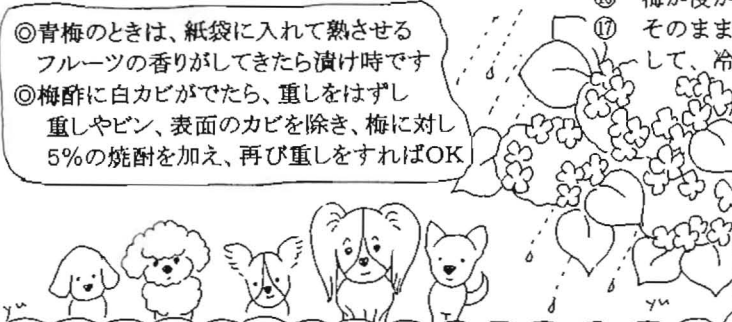 ◎青梅のときは、紙袋に入れて熟させる
フルーツの香りがしてきたら漬け時です
◎梅酢に白カビがでたら、重しをはずし
重しやビン、表面のカビを除き、梅に対し
5%の焼酎を加え、再び重しをすればOK
⑰ そのまま
して、冷
yu
yu